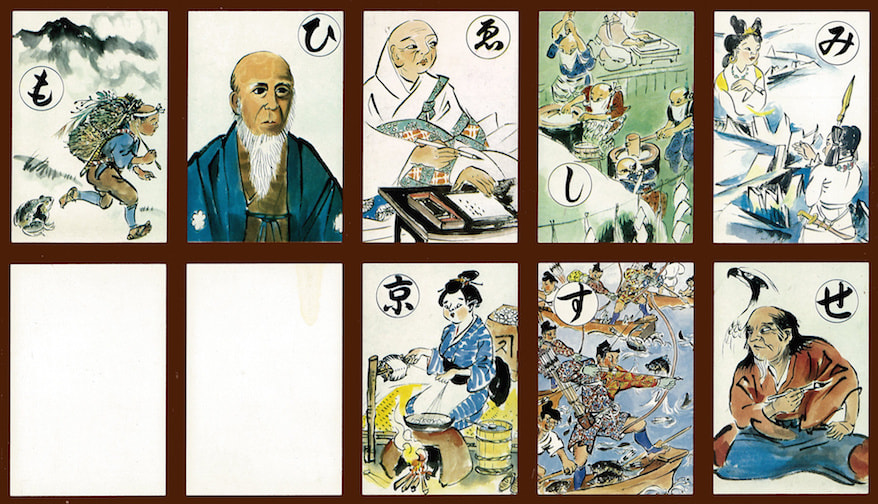 も
ひ
ゑ
し
み
京
す
せ